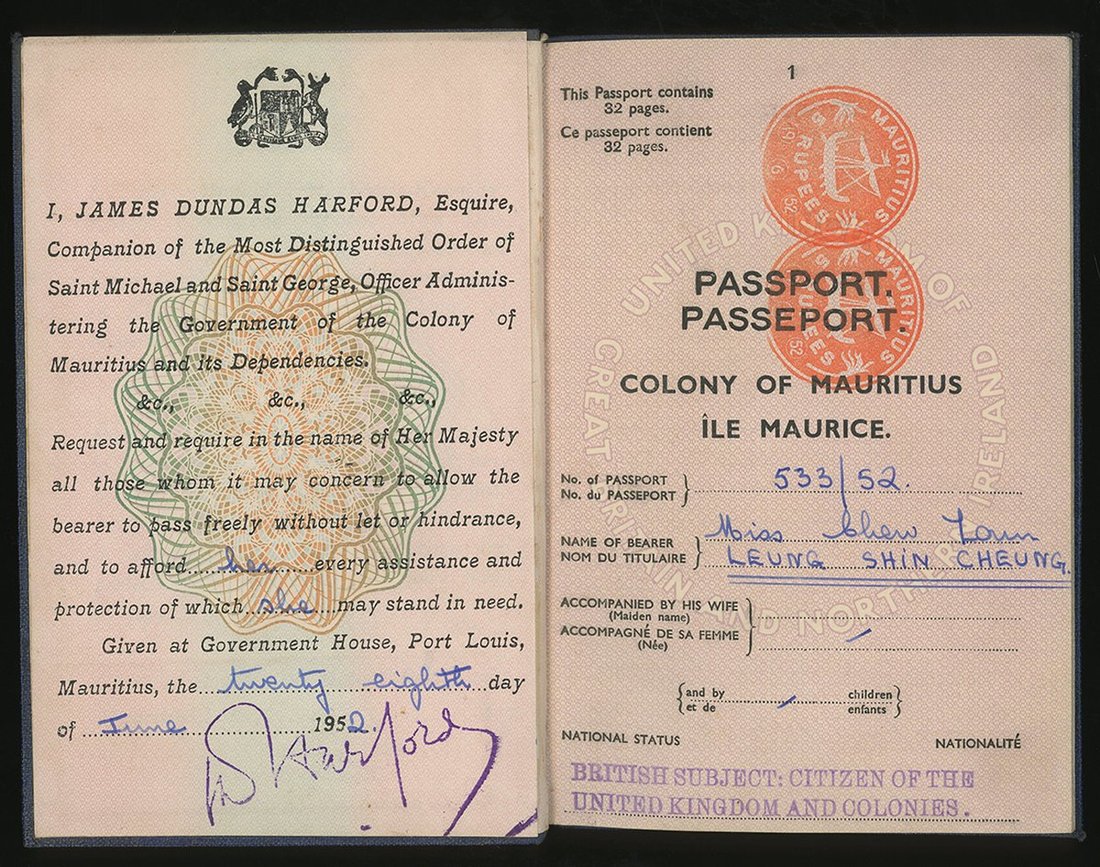 I, JAMES DUNDAS HARFORD, Esquire,
Companion of the Most Distinguished Order of
Saint Michael and Saint George, Officer Adminis-
tering the Government of the Colony of
Mauritius and its Dependencies.
&c., &c., &c.,
Request and require in the name of Her Majesty
all those whom it may concern to allow the
bearer to pass freely without let or hindrance,
and to afford her every assistance and
protection of which she may stand in need.
Given at Government House, Port Louis,
Mauritius, the twenty eighth day
of June 1952.
Harford
1
This Passport contains
32 pages.
Ce passeport contient
32 pages.
MAURITIUS
5 RUPEES
6 52
MAURITIUS
RUPEES
52
UNITED KINGDOM OF
GREAT BRITAIN AND NORTHERN IRELAND
PASSPORT.
PASSEPORT.
COLONY OF MAURITIUS
ÎLE MAURICE.
No. of PASSPORT
No. du PASSEPORT
533/52.
NAME OF BEARER
NOM DU TITULAIRE
Miss Chew
LEUNG SHIN CHEUNG.
ACCOMPANIED BY HIS WIFE
(Maiden name)
ACCOMPAGNÉ DE SA FEMME
(Née)
and by children
et de enfants
NATIONAL STATUS NATIONALITÉ
BRITISH SUBJECT: CITIZEN OF THE
UNITED KINGDOM AND COLONIES.